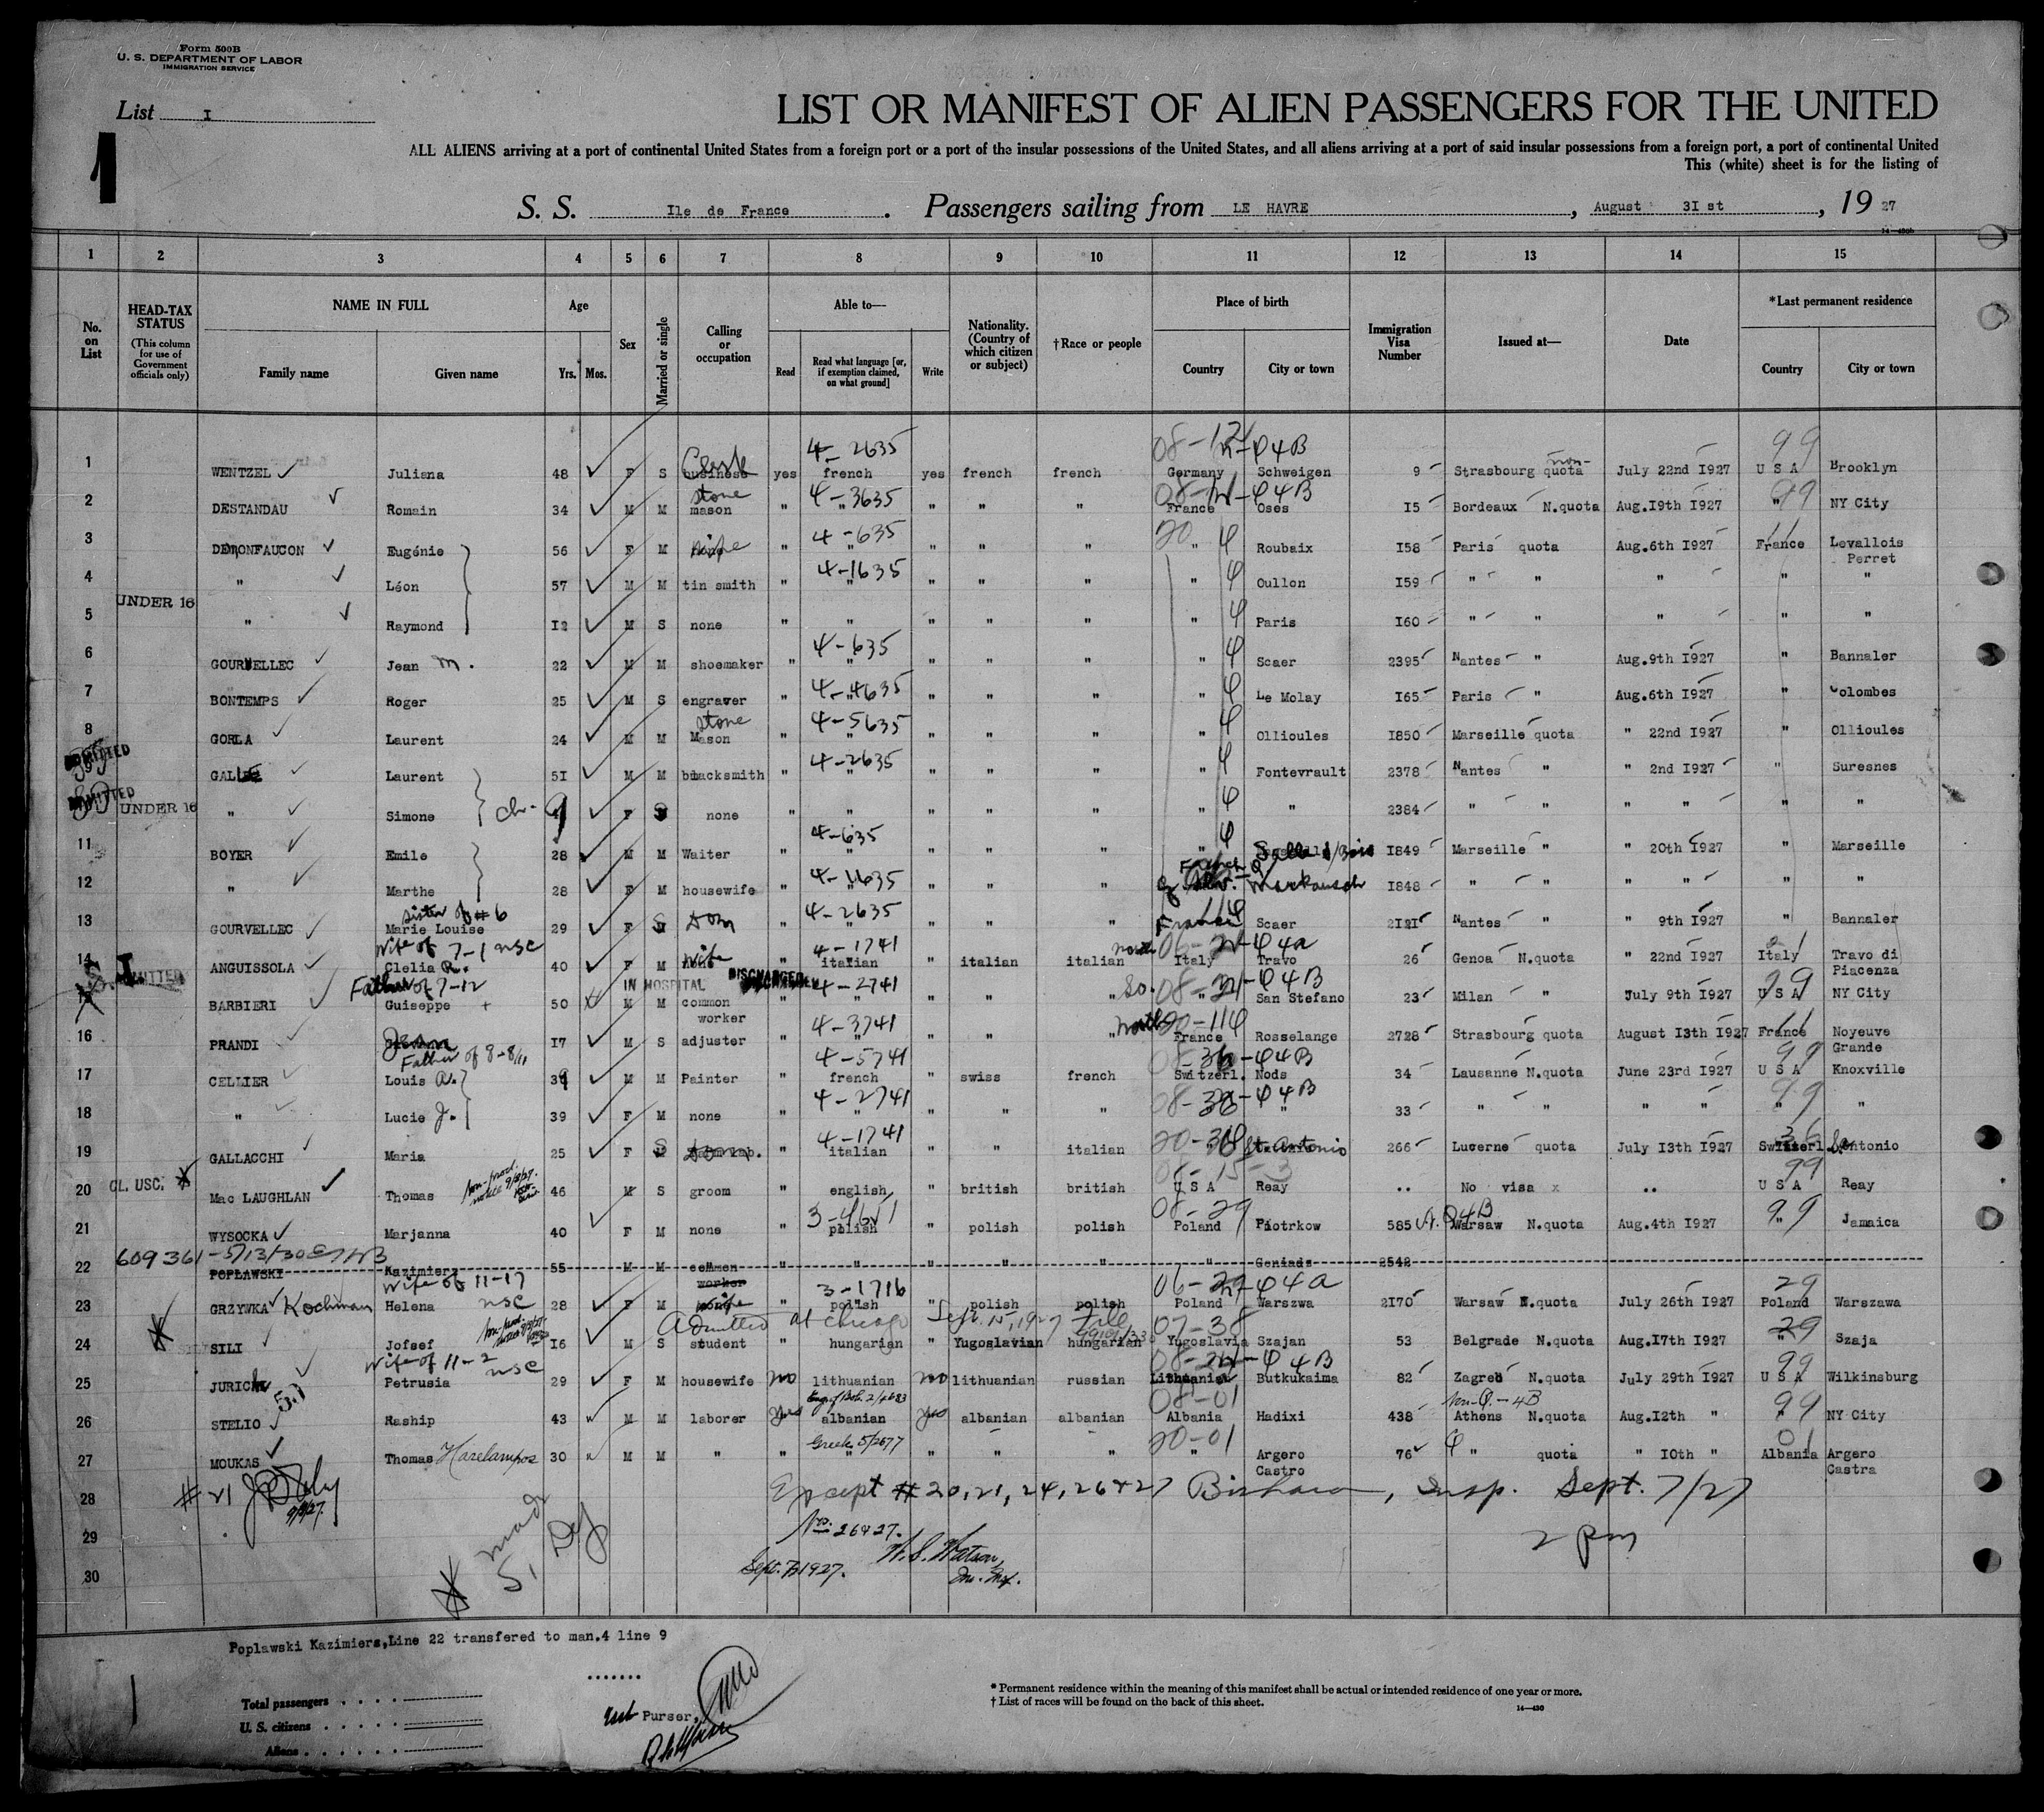 Form 500B
U. S. DEPARTMENT OF LABOR
IMMIGRATION SERVICE
List I
1
LIST OR MANIFEST OF ALIEN PASSENGERS FOR THE UNITED
ALL ALIENS arriving at a port of continental United States from a foreign port or a port of the insular possessions of the United States, and all aliens arriving at a port of said insular possessions from a foreign port, a port of continental United
This (white) sheet is for the listing of
S. S. Ile de France . Passengers sailing from LE HAVRE , August 3I st , 19 27
1 2 3 4 5 6 7 8 9 10 11 12 13 14 15
No. on List
HEAD-TAX STATUS
(This column for use of Government officials only)
NAME IN FULL
Family name Given name
Age
Yrs. Mos.
Sex
Married or single
Calling or occupation
Able to—
Read Read what language [or, if exemption claimed, on what ground] Write
Nationality. (Country of which citizen or subject)
†Race or people
Place of birth
Country City or town
Immigration Visa Number
Issued at—
Date
*Last permanent residence
Country City or town
4-2635
1 WENTZEL Juliana 48 F S Clerk yes french yes french french Germany Schweigen 9 Strasbourg non-quota July 22nd I927 U S A Brooklyn
stone 4-3635
2 DESTANDAU Romain 34 M M mason " " " " " France Oses I5 Bordeaux N.quota Aug.I9th I927 " NY City
4-635
3 DEMONFAUCON Eugénie 56 F M " " " " " " Roubaix I58 Paris quota Aug.6th I927 France Levallois Perret
4-1635
4 " Léon 57 M M tin smith " " " " " " Oullon I59 " " " " "
UNDER 16
5 " Raymond I2 M S none " " " " " " Paris I60 " " " " "
4-635
6 GOURVELLEC Jean M. 22 M M shoemaker " " " " " " Scaer 2395 Nantes " Aug.9th I927 " Bannaler
4-4635
7 BONTEMPS Roger 25 M S engraver " " " " " " Le Molay I65 Paris " Aug.6th I927 " Colombes
stone 4-5635
8 GORLA Laurent 24 M M Mason " " " " " " Ollioules I850 Marseille quota " 22nd I927 " Ollioules
ADMITTED 4-2635
GALLE Laurent 5I M M blacksmith " " " " " " Fontevrault 2378 Nantes " " 2nd I927 " Suresnes
ADMITTED UNDER 16
" Simone ch. F S none " " " " " " " 2384 " " " " " "
4-635
11 BOYER Emile 28 M M Waiter " " " " " " I849 Marseille " " 20th I927 " Marseille
4-1635
12 " Marthe 28 F M housewife " " " " " I848 " " " " " "
sister of #6 4-2635
13 GOURVELLEC Marie Louise 29 F S Dom " " " " " France Scaer 2I2I Nantes " " 9th I927 " Bannaler
Wife of 7-1 nsc 4-1741
14 ANGUISSOLA Clelia 40 F M wife " italian " italian italian north Italy Travo 26 Genoa N.quota " 22nd I927 Italy Travo di Piacenza
S.I. ADMITTED Father of 7-12 IN HOSPITAL DISCHARGED 4-2741
BARBIERI Guiseppe + 50 M M common worker " " " " " So. " San Stefano 23 Milan " July 9th I927 U S A NY City
4-3741
16 PRANDI Jean I7 M S adjuster " " " " " North France Rosselange 2728 Strasbourg quota August I3th I927 France Noyeuve Grande
Father of 8-8/11 4-5741
17 CELLIER Louis A. 39 M M Painter " french " swiss french Switzerl. Nods 34 Lausanne N.quota June 23rd I927 U S A Knoxville
4-2741
18 " Lucie J. 39 F M none " " " " " " " 33 " " " " " "
4-1741
19 GALLACCHI Maria 25 F S " italian " " italian " St. Antonio 266 Lucerne quota July I3th I927 Switzerl S. Antonio
20 CL. USC. Mac LAUGHLAN Thomas 46 M S groom " english " british british U S A Reay .. No visa x .. U S A Reay
21 WYSOCKA Marjanna 40 F M none " polish " polish polish Poland Piotrkow 585 Warsaw N.quota Aug.4th I927 " Jamaica
609361-5/13/30
22 POPLAWSKI Kazimierz 55 M M common worker " " " " " " Goniads 2542
Wife of 11-17 nsc 3-1716
23 GRZYWKA Kochman Helena 28 F M " polish " polish polish Poland Warszwa 2I70 Warsaw N.quota July 26th I927 Poland Warszawa
Admitted at Chicago Sept. 15, 1927 File
24 SILI Jofsef I6 M S student " hungarian " Yugoslavian hungarian Yugoslavia Szajan 53 Belgrade N.quota Aug.I7th I927 " Szaja
Wife of 11-2 nsc
25 JURICH Petrusia 29 F M housewife no lithuanian no lithuanian russian Lithuania Butkukaima 82 Zagreb N.quota July 29th I927 U S A Wilkinsburg
26 STELIO Raship 43 M M laborer yes albanian yes albanian albanian Albania Hadixi 438 Athens N.quota Aug.I2th " " NY City
Greek 5/2677
27 MOUKAS Thomas Harelampos 30 M M " " " " " " " Argero Castro 76 " quota " I0th " Albania Argero Castra
28 #21 9/8/27. Except #20,21,24,26&27 , Insp. Sept. 7/27
29 Nos. 26&27. 2 pm
30 Sept. 7, 1927. W. S. Watson,
Poplawski Kazimiers,Line 22 transfered to man.4 line 9
.......
Purser,
Total passengers . . . .
U. S. citizens . . . . .
Aliens . . . . . .
* Permanent residence within the meaning of this manifest shall be actual or intended residence of one year or more.
† List of races will be found on the back of this sheet.
14—430